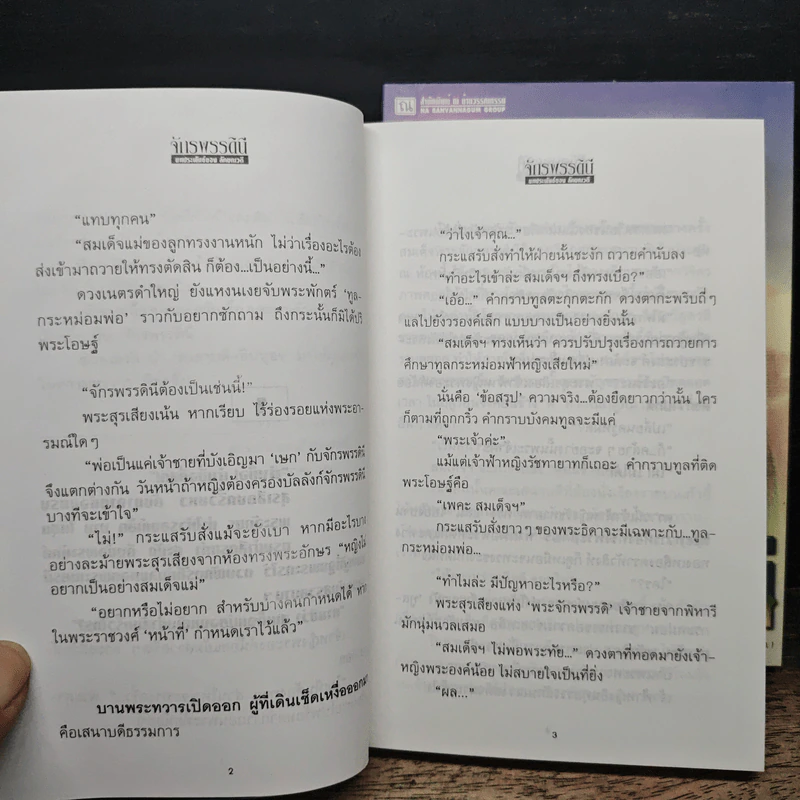 สำนักพิมพ์ ณ บ้านวรรณกรรม
NA BANVANNAGUM GROUP
จักรพรรดินี
"แทบทุกคน"
"สมเด็จแม่ของลูกทรงงานหนัก ไม่ว่าเรื่องอะไรต้อง
ส่งเข้ามาถวายให้ทรงตัดสิน ก็ต้อง...เป็นอย่างนี้..."
ดวงเนตรดำใหญ่ ยังแหงนเงยจับพระพักตร์ 'ทูล-
กระหม่อมพ่อ' ราวกับอยากซักถาม ถึงกระนั้นก็มิได้ปริ
พระโอษฐ์
"จักรพรรดินีต้องเป็นเช่นนี้!"
พระสุรเสียงเน้น หากเรียบ ไร้ร่องรอยแห่งพระอา-
รมณ์ใดๆ
"พ่อเป็นแค่เจ้าชายที่บังเอิญมา 'เษก' กับจักรพรรดินี
จึงแตกต่างกัน วันหน้าถ้าหญิงต้องครองบัลลังก์จักรพรรดินี
บางทีจะเข้าใจ"
"ไม่!" กระแสรับสั่งแม้จะยังเบา หากมีอะไรบาง
อย่างละม้ายพระสุรเสียงจากห้องทรงพระอักษร "หญิงไม่
อยากเป็นอย่างสมเด็จแม่"
"อยากหรือไม่อยาก สำหรับบางคนกำหนดได้ หาก
ในพระราชวงศ์ 'หน้าที่' กำหนดเราไว้แล้ว"
บานพระทวารเปิดออก ผู้ที่เดินเช็ดเหงื่อออกมา
คือเสนาบดีธรรมการ
2
จักรพรรดินี
"ว่าไงเจ้าคุณ..."
กระแสรับสั่งทำให้ฝ่ายนั้นชะงัก ถวายคำนับลง
"ทำอะไรเข้าล่ะ สมเด็จฯ ถึงทรงเบื่อ?"
"เอ้อ..." คำกราบทูลตะกุกตะกัก ดวงตากะพริบถี่ๆ
แลไปยังวรองค์เล็ก แบบบางเป็นอย่างยิ่งนั้น
"สมเด็จฯ ทรงเห็นว่า ควรปรับปรุงเรื่องการถวายการ
ศึกษาทูลกระหม่อมฟ้าหญิงเสียใหม่"
นั่นคือ 'ข้อสรุป' ความจริง...ต้องยืดยาวกว่านั้น ใคร
ก็ตามที่ถูกกริ้ว คำกราบบังคมทูลจะมีแค่
"พระเจ้าค่ะ"
แม้แต่เจ้าฟ้าหญิงรัชทายาทก็เถอะ คำกราบทูลที่ติด
พระโอษฐ์คือ
"เพคะ สมเด็จฯ"
กระแสรับสั่งยาวๆ ของพระธิดาจะมีเฉพาะกับ...ทูล-
กระหม่อมพ่อ...
"ทำไมล่ะ มีปัญหาอะไรหรือ?"
พระสุรเสียงแห่ง 'พระจักรพรรดิ' เจ้าชายจากพิหารี
มักนุ่มนวลเสมอ
"สมเด็จฯ ไม่พอพระทัย..." ดวงตาที่ทอดมายังเจ้า-
หญิงพระองค์น้อย ไม่สบายใจเป็นที่ยิ่ง
"ผล..."
3